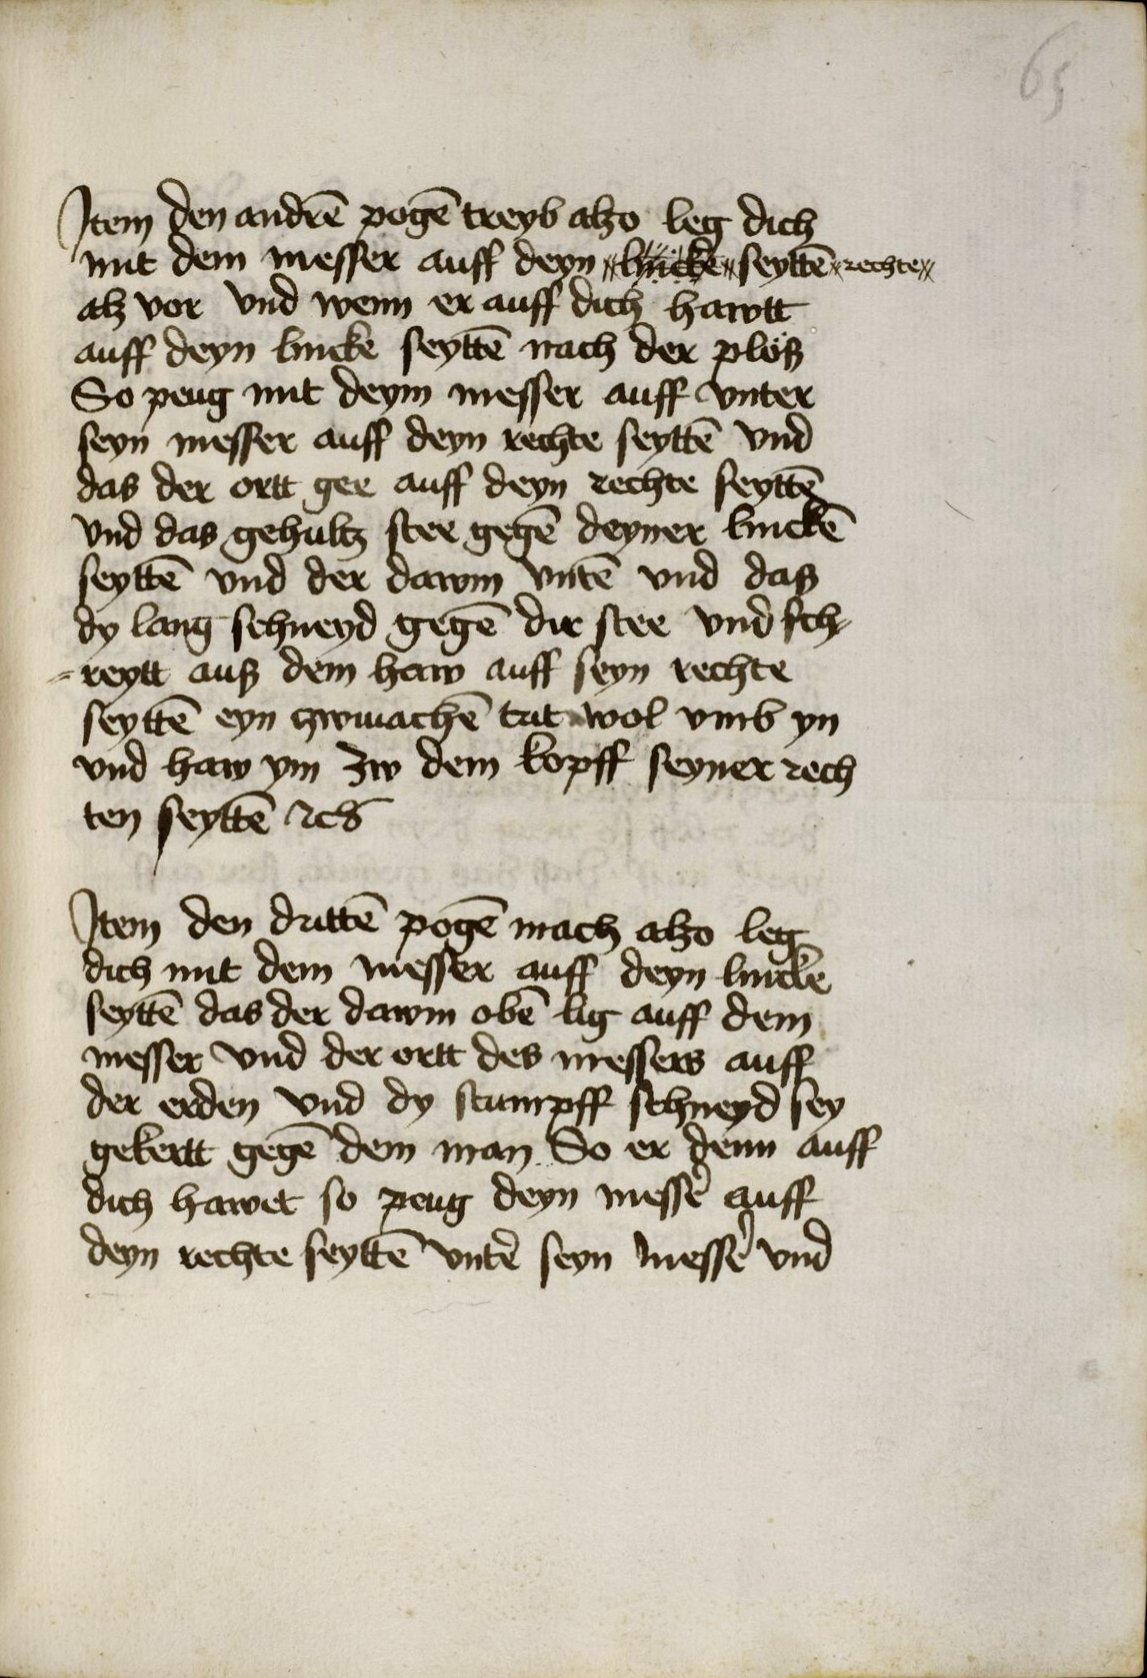 65
Item den andrē pogē treyb alzo leg dich
mit dem messer auff deyn lincke seyttē rechte
alz vor vnd wenn er auff dich hawtt
auff deyn lincke seyttē nach der plöß
So peug mit deym messer auff vnter
seyn messer auff deyn rechte seyttē vnd
das der ortt gee auff deyn rechte seyttē
vnd das gehultz stee gegē deyner linckē
seyttē vnd der dawm vntē vnd daß
dy lang schneyd gegē dir stee vnd sch-
-reytt auß dem haw auff seyn rechte
seyttē eyn zwuachē trit wol vmb yn
vnd haw ym zw dem kopff seyner rech
ten seyttē ⁊cß
Item den drittē pogē mach alzo leg
dich mit dem messer auff deyn lincke
seyttē das der dawm obē lig auff dem
messer vnd der ortt des messers auff
der erden vnd dy stumpff schneyd sey
gekertt gegē dem man So er denn auff
dich hawet so peug deyn messe͛ auff
deyn rechte seyttē vnte͛ seyn messe͛ vnd